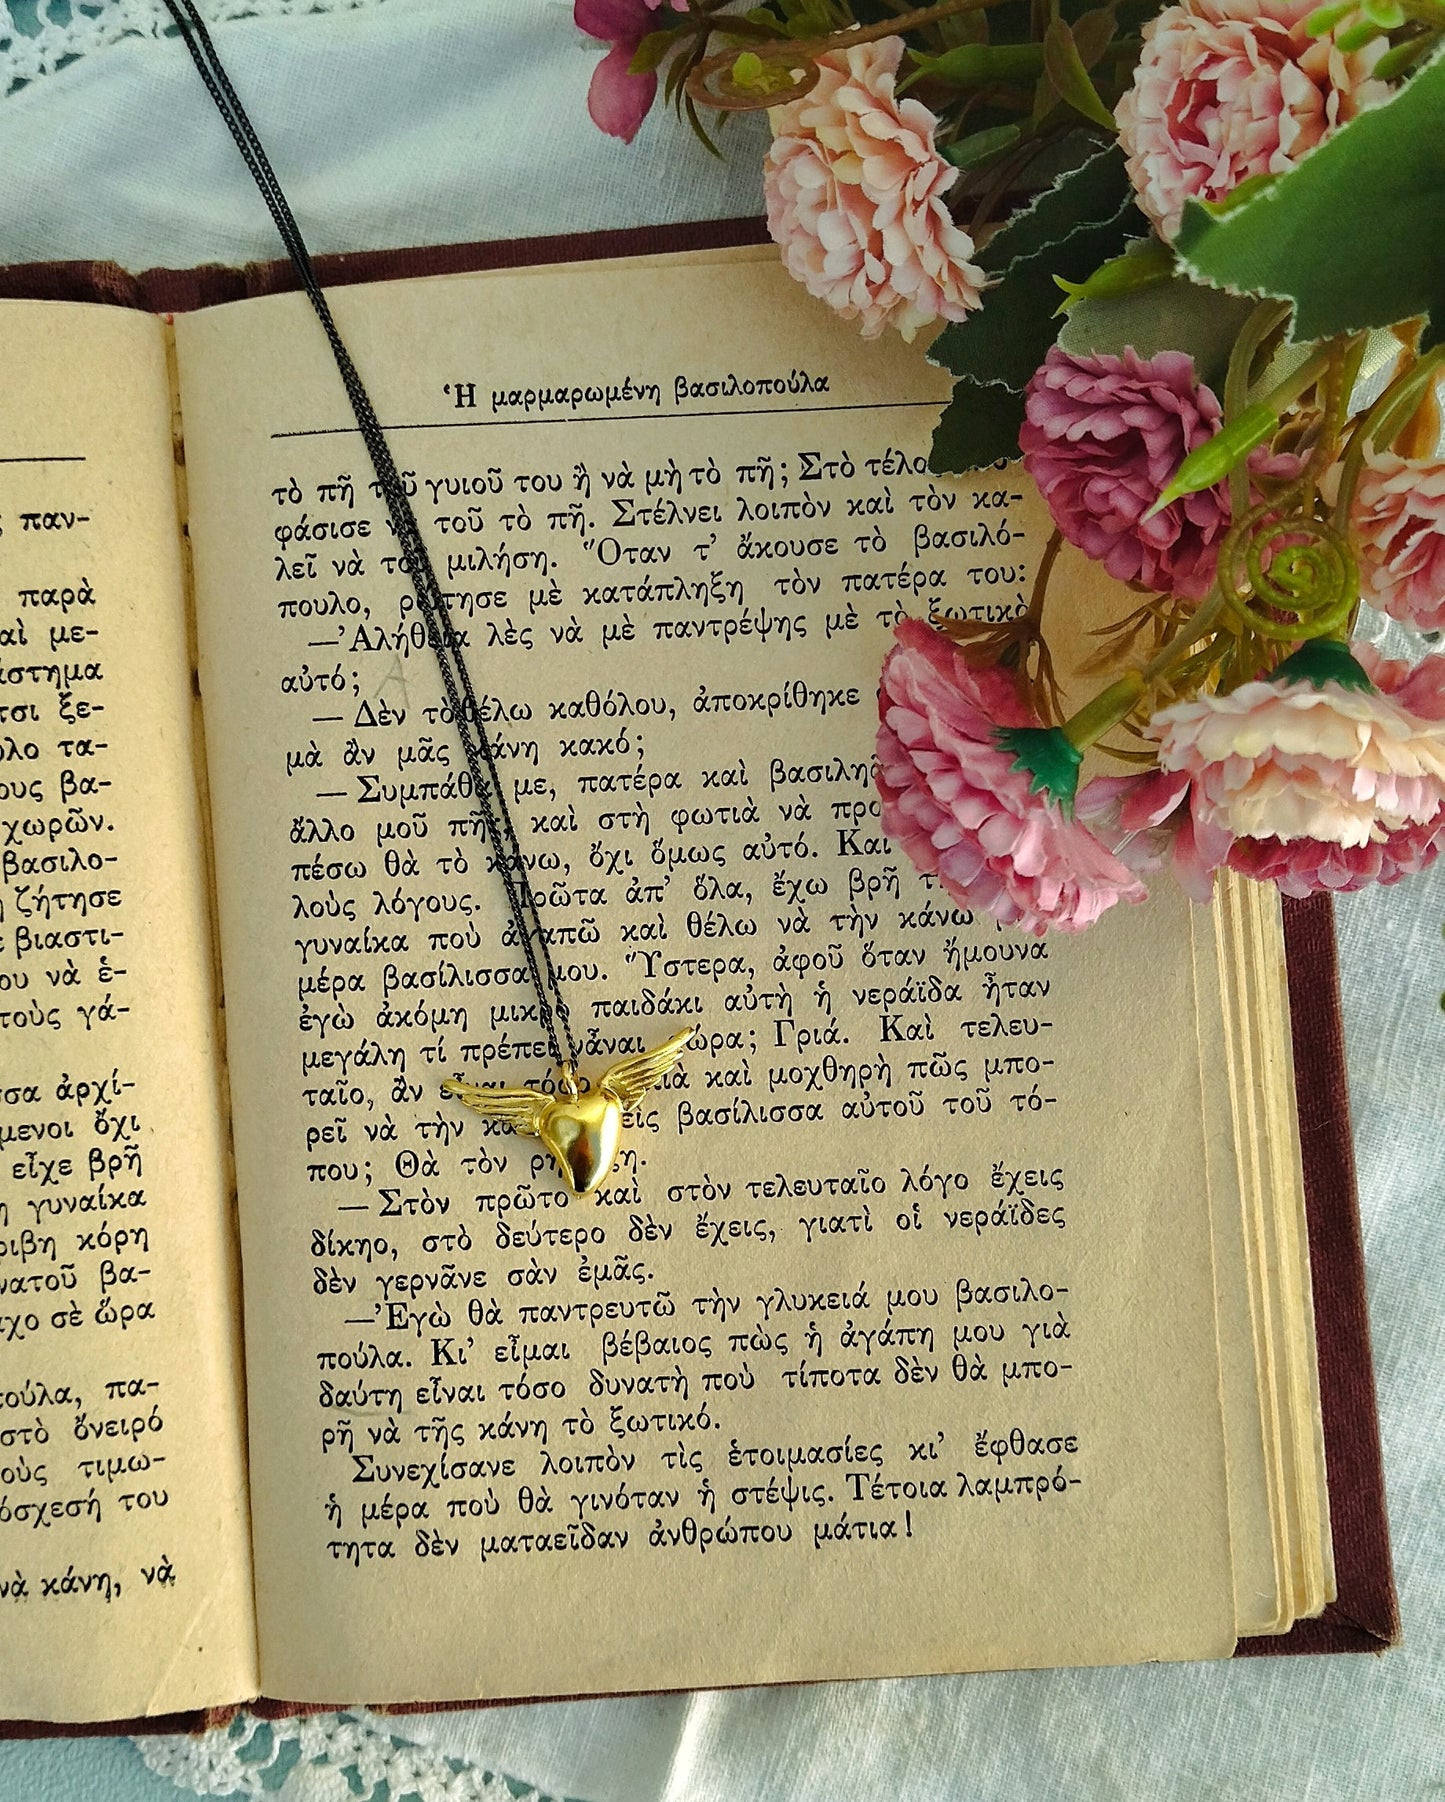 ς παν-
παρὰ
αὶ με-
άστημα
τσι ξε-
υλο τα-
ους βα-
χωρῶν.
βασιλο-
η ζήτησε
ε βιαστι-
ου νὰ ἑ-
τοὺς γά-
σσα ἀρχί-
μενοι ὄχι
εἶχε βρῆ
η γυναίκα
ριβη κόρη
νατοῦ βα-
αχο σὲ ὥρα
πούλα, πα-
στὸ ὄνειρό
οὺς τιμω-
όσχεσή του
νὰ κάνη, νὰ
Ἡ μαρμαρωμένη βασιλοπούλα
τὸ πῆ τοῦ γυιοῦ του ἢ νὰ μὴ τὸ πῆ; Στὸ τέλο
φάσισε νὰ τοῦ τὸ πῆ. Στέλνει λοιπὸν καὶ τὸν κα-
λεῖ νὰ τοῦ μιλήση. Ὅταν τ' ἄκουσε τὸ βασιλό-
πουλο, ρώτησε μὲ κατάπληξη τὸν πατέρα του:
—'Αλήθεια λὲς νὰ μὲ παντρέψης μὲ τὸ ξωτικὸ
αὐτό;
— Δὲν τὸ θέλω καθόλου, ἀποκρίθηκε
μὰ ἂν μᾶς κάνη κακό;
— Συμπάθα με, πατέρα καὶ βασιληᾶ
ἄλλο μοῦ πῆς, καὶ στὴ φωτιὰ νὰ προ
πέσω θὰ τὸ κάνω, ὄχι ὅμως αὐτό. Και
λοὺς λόγους. Πρῶτα ἀπ' ὅλα, ἔχω βρῆ τ
γυναίκα ποὺ ἀγαπῶ καὶ θέλω νὰ τὴν κάνω
μέρα βασίλισσα μου. Ὕστερα, ἀφοῦ ὅταν ἤμουνα
ἐγὼ ἀκόμη μικρὸ παιδάκι αὐτὴ ἡ νεράϊδα ἦταν
μεγάλη τί πρέπει νἆναι τώρα; Γριά. Καὶ τελευ-
ταῖο, ἂν εἶναι τόσο κακιὰ καὶ μοχθηρὴ πῶς μπο-
ρεῖ νὰ τὴν κά εἰς βασίλισσα αὐτοῦ τοῦ τό-
που; Θὰ τὸν ρη ξη.
— Στὸν πρῶτο καὶ στὸν τελευταῖο λόγο ἔχεις
δίκηο, στὸ δεύτερο δὲν ἔχεις, γιατὶ οἱ νεράϊδες
δὲν γερνᾶνε σὰν ἐμᾶς.
—'Εγὼ θὰ παντρευτῶ τὴν γλυκειά μου βασιλο-
πούλα. Κι' εἶμαι βέβαιος πὼς ἡ ἀγάπη μου γιὰ
δαύτη εἶναι τόσο δυνατὴ ποὺ τίποτα δὲν θὰ μπο-
ρῆ νὰ τῆς κάνη τὸ ξωτικό.
Συνεχίσανε λοιπὸν τὶς ἑτοιμασίες κι' ἔφθασε
ἡ μέρα ποὺ θὰ γινόταν ἡ στέψις. Τέτοια λαμπρό-
τητα δὲν ματαεῖδαν ἀνθρώπου μάτια!